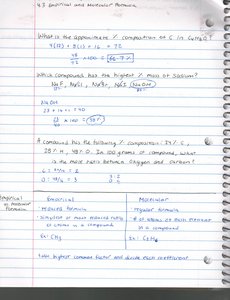 4.3 Empirical and Molecular Formula
What is the approximate % composition of C in C4H8O?
4(12) + 8(1) + 16 = 72
48/72 × 100 = 66.7%
Which compound has the highest % mass of sodium?
NaF, NaCl, NaBr, NaI, NaOH
NaOH
23 + 16 + 1 = 40
23/40 × 100 = 58%
A compound has the following % composition: 24% C,
28% H, 48% O. In 100 grams of compound, what
is the mole ratio between oxygen and carbon?
C: 24/12 = 2
O: 48/16 = 3
3:2
Empirical
vs Molecular
Formulas
Empirical
Molecular
reduced formula
regular formula
simplest or most reduced ratio
of atoms in a compound
# of atoms of each element
in a compound
Ex: CH3
Ex: C2H6
find highest common factor and divide each coefficient